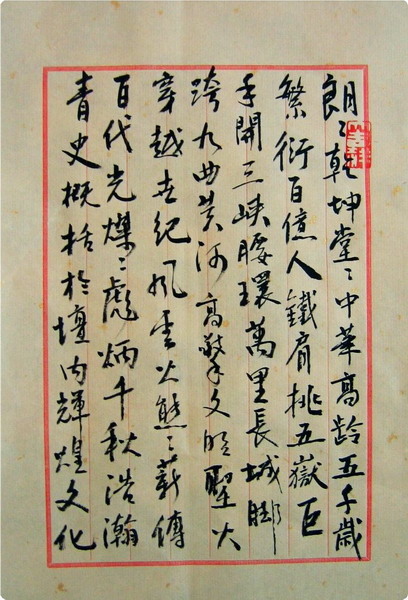 朗々乾坤堂々中華高齡五千歲
繁衍百億人鐵肩挑五嶽巨
手開三峽腰環萬里長城脚
跨九曲黃河高擎文明聖火
穿越世紀風雲火熊々薪傳
百代光燦々彪炳千秋浩瀚
青史概括於壇內輝煌文化